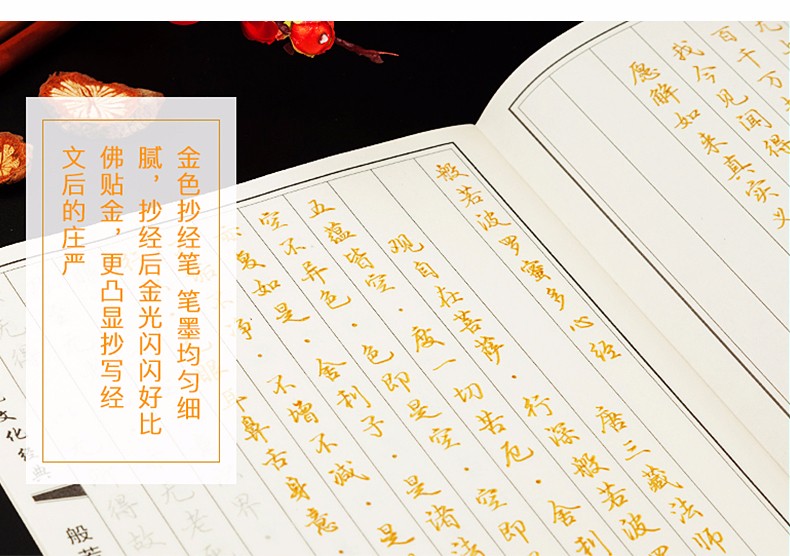 金色抄经笔 笔墨均匀细
腻，抄经后金光闪闪好比
佛贴金，更凸显抄写经
文后的庄严
百千万
我今见闻得
愿解如来真实义
般若波罗蜜多心经
唐三藏法师
观自在菩萨·行深般若波
五蕴皆空·度一切苦厄·舍利
空不异色·色即是空·空即
复如是·舍利子·是诸
净·不增不减·是
鼻舌身意
无老
得故
文化经典
般若